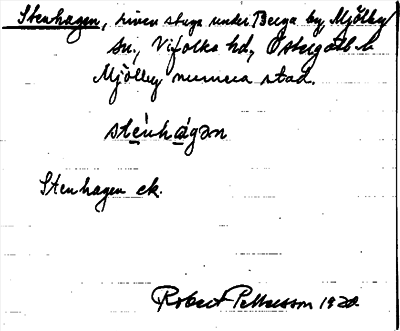 Stenhagen, riven stuga under Berga by, Mjölby
sn., Vifolka hd, Östergötl. l.
Mjölby numera stad.
stènhágan
Stenhagen ek.
Robert Pettersson 1928.